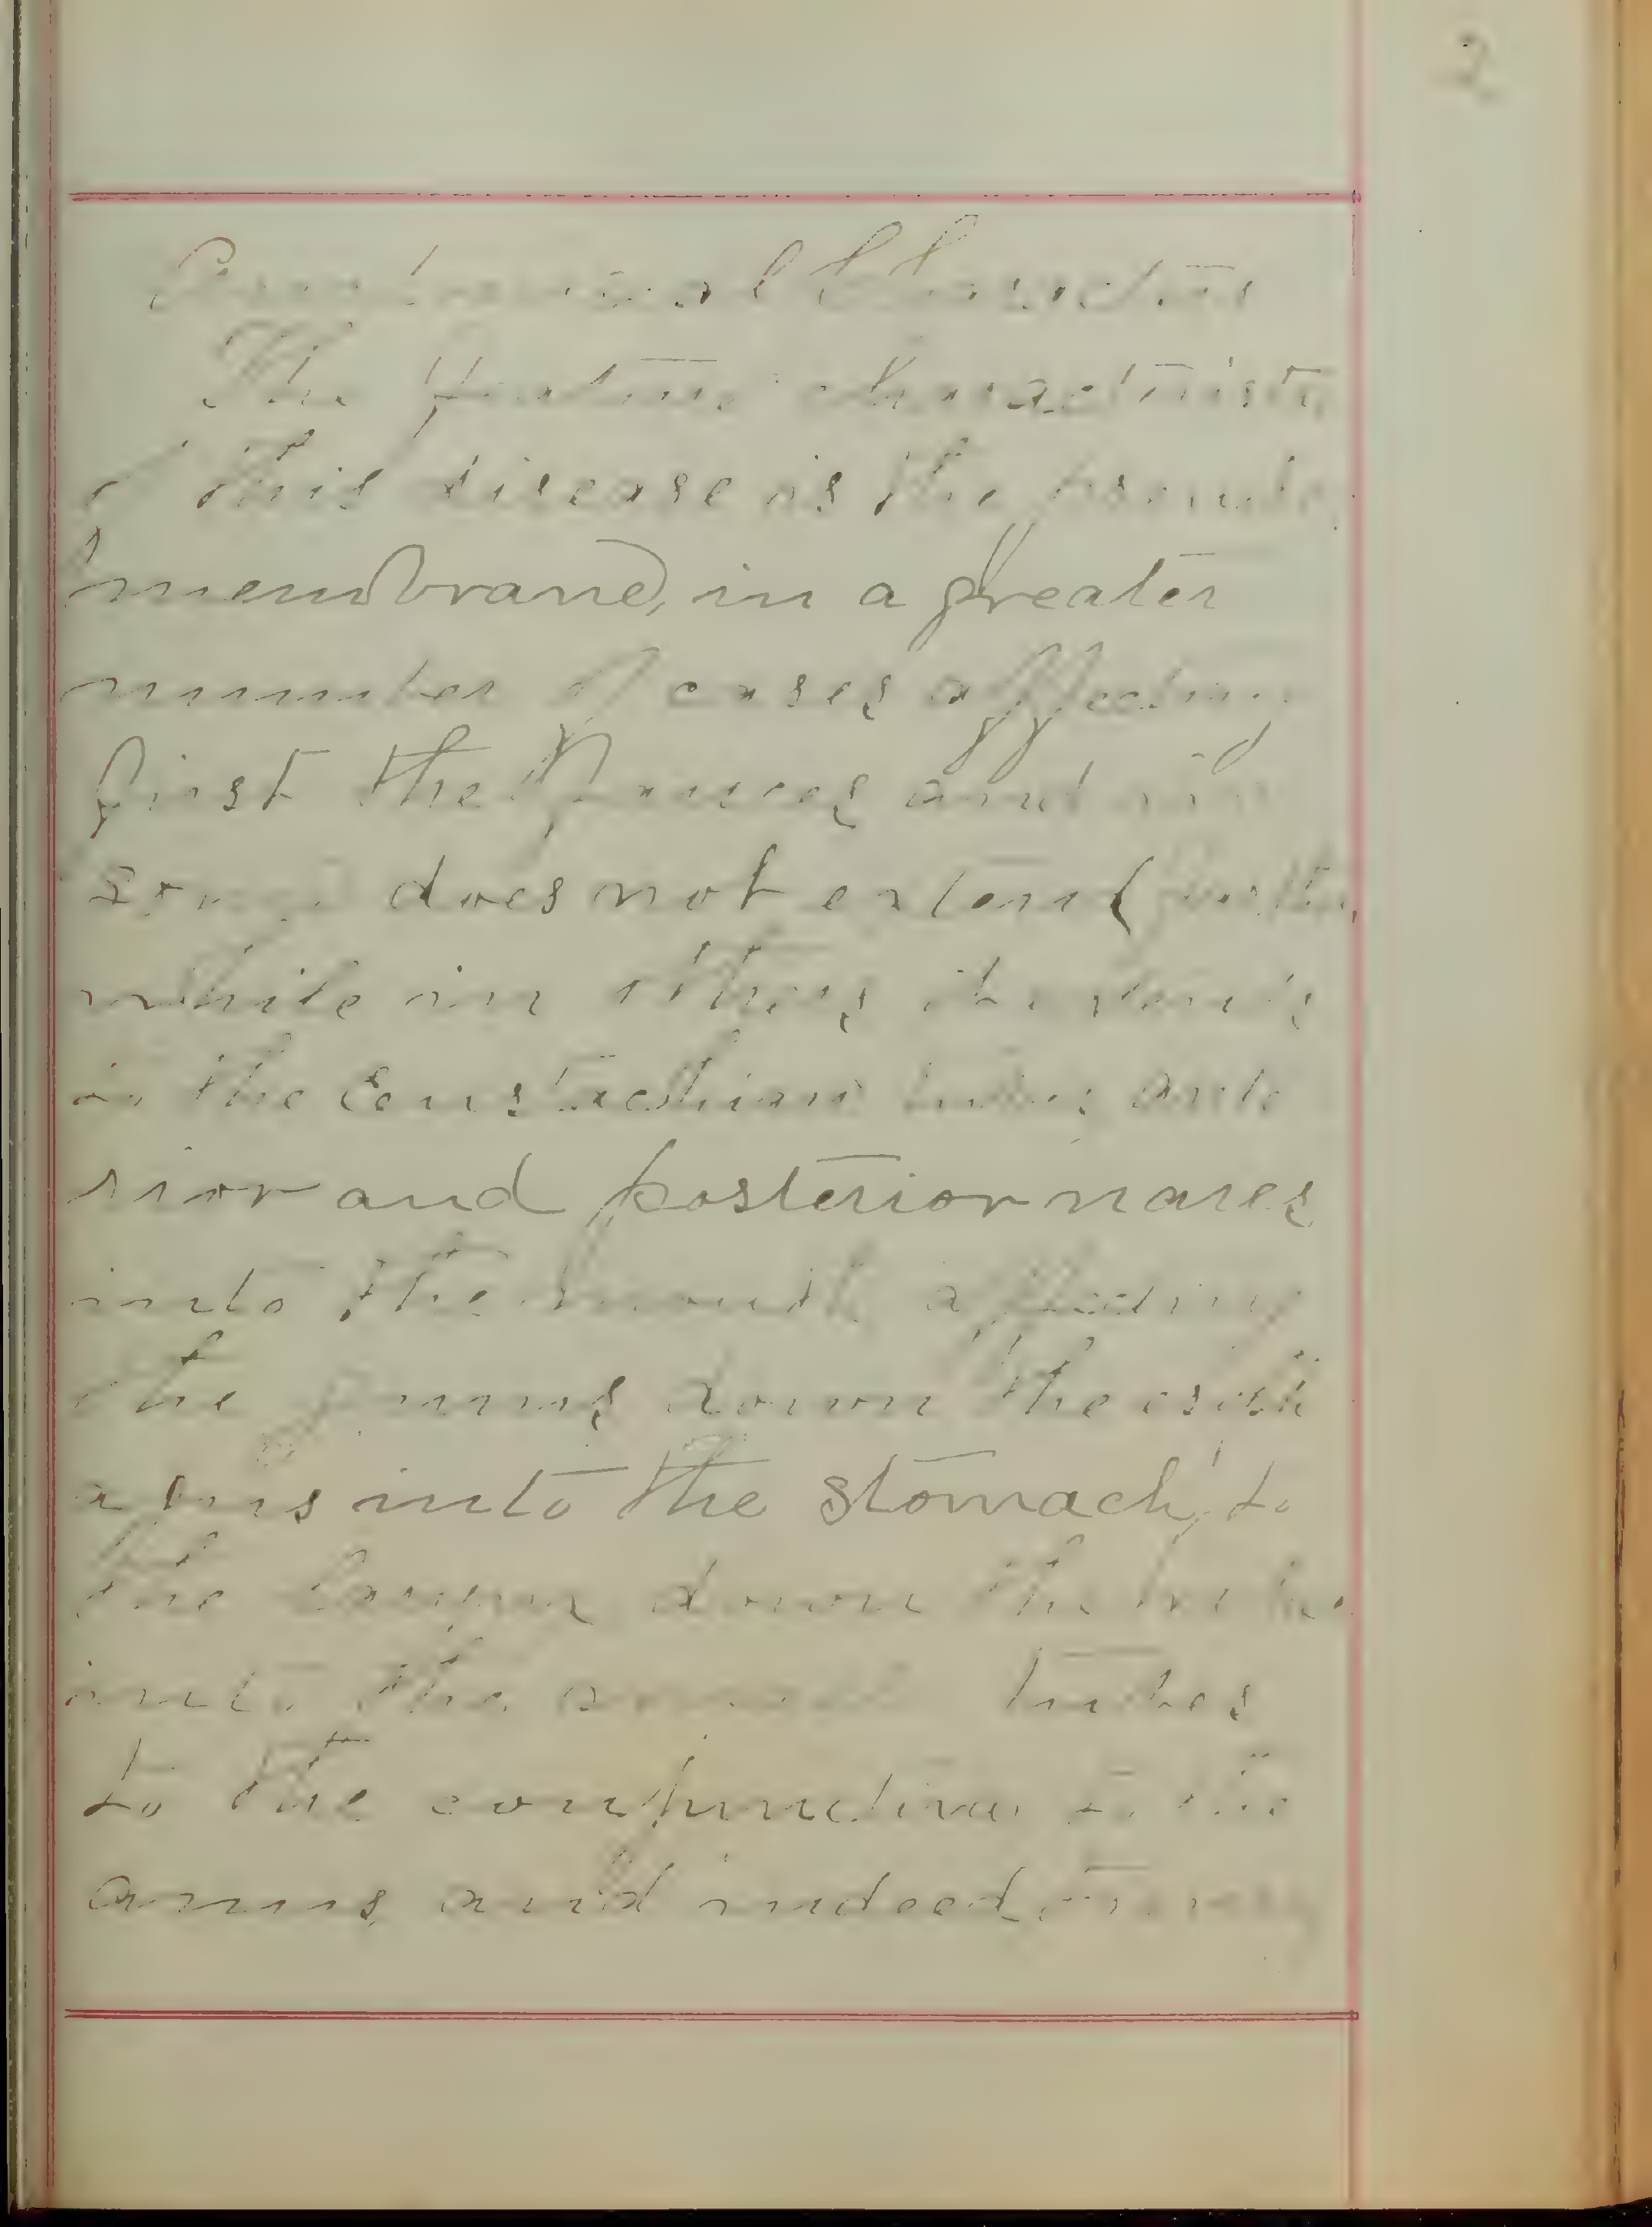 2
Anatomical Characters
The feature characteristic
of this disease is the pseudo
membrane, in a greater
number of cases affecting
first the fauces and in
some does not extend further
while in others it extends
in the Eustachian tubes ante
rior and posterior nares
into the mouth affecting
the gums down the esoph
agus into the stomach, to
the larynx down the trachea
into the tubes
to the conjunctiva to the
anus, and indeed